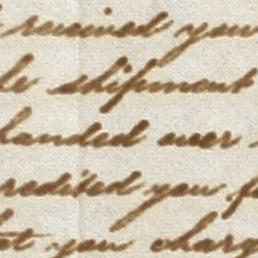 received you
shipment
landed over
redited you f
at you charg